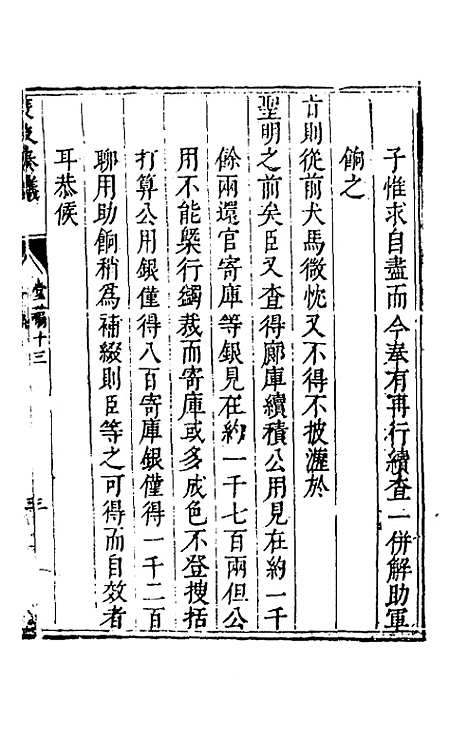 子惟求自盡而今奉有再行續查一併解助軍
餉之
旨則從前犬馬微忱又不得不披瀝於
聖明之前矣臣又查得廊庫續積公用見在約一千
餘兩還官寄庫等銀見在約一千七百兩但公
用不能槩行蠲裁而寄庫或多成色不登搜括
打算公用銀僅得八百寄庫銀僅得一千二百
聊用助餉稍為補綴則臣等之可得而自效者
耳恭候
奏議
堂稿十三
三